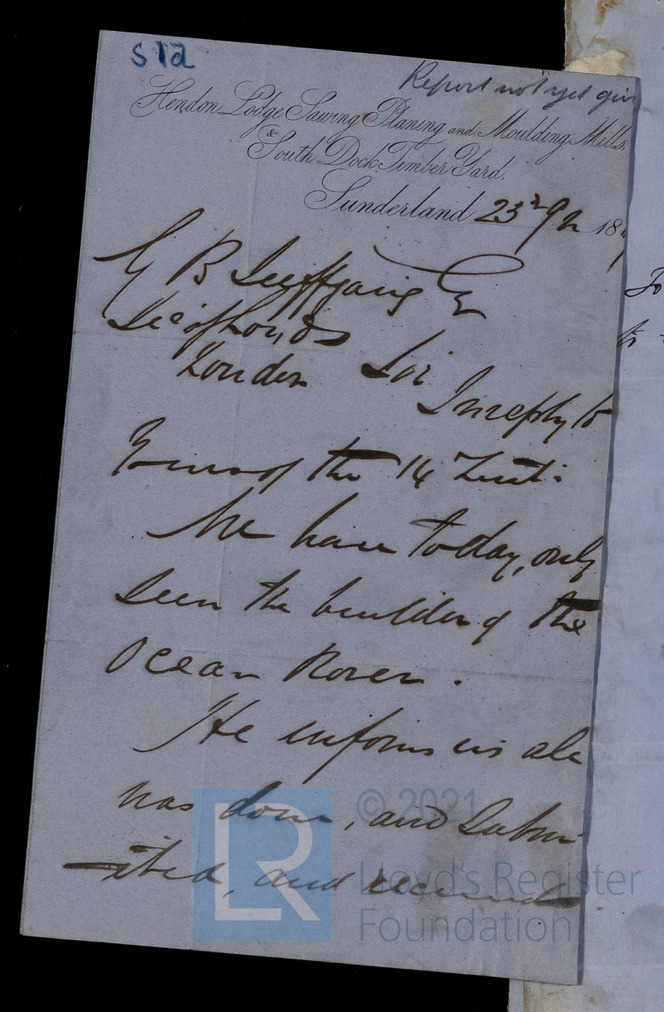 Sld
Report not yet giv
Hendon Lodge Sawing Planing and Moulding Mills,
&
South Dock Timber Yard.
Sunderland 23rd 18
G B
London Sir In reply to
Yours of the 14 Inst:
We have today, only
seen the builder of the
Ocean Rover.
He informs us all
was done, and Submi
-tted, and received
© 2021
LR
Lloyd's Register
Foundation
To